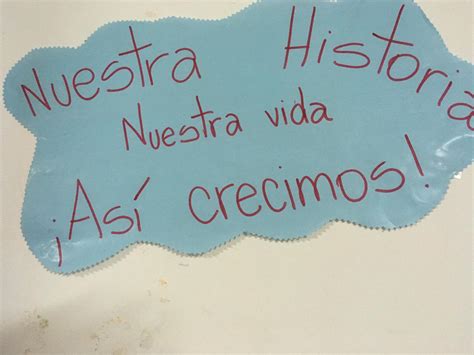 Nuestra Historia
Nuestra vida
¡Así crecimos!